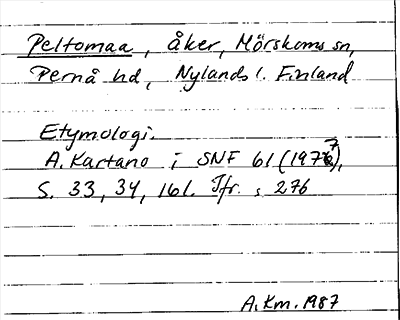 Peltomaa, åker, Mörskoms sn,
Pernå hd, Nylands l. Finland
Etymologi.
A. Kartano i SNF 61 (1977),
S. 33, 34, 161. Jfr. s. 276
A. Km. 1987